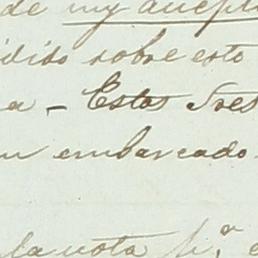 de my aucpt
idido sobre esto
a - Estos Sres
n embarcado
la nota p.ª e